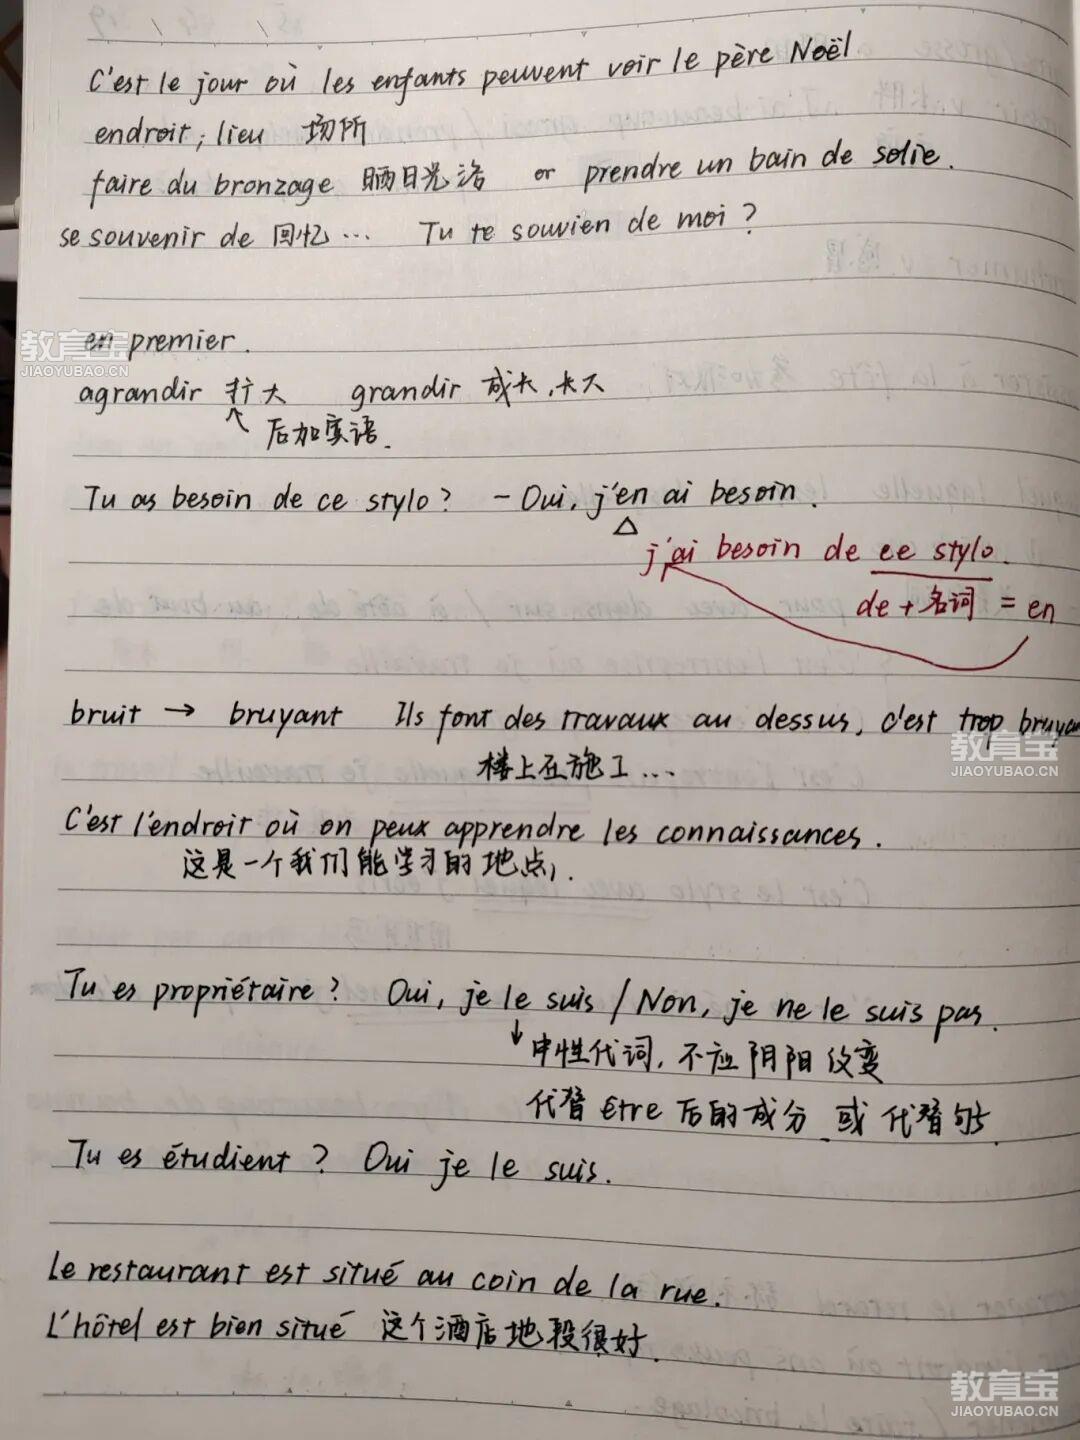 C'est le jour où les enfants peuvent voir le père Noël
endroit; lieu 场所
faire du bronzage 晒日光浴 or prendre un bain de solie.
se souvenir de 回忆... Tu te souvien de moi?
en premier.
agrandir 扩大 grandir 成长,长大
后加宾语.
Tu as besoin de ce stylo? - Oui, j'en ai besoin.
j'ai besoin de ce stylo.
de + 名词 = en
bruit → bruyant Ils font des travaux au dessus, c'est trop
楼上在施工...
C'est l'endroit où on peux apprendre les connaissances.
这是一个我们能学习的地点.
Tu es propriétaire? Oui, je le suis / Non, je ne le suis pas.
↓ 中性代词,不应阴阳改变
代替 être 后的成分 或 代替句子.
Tu es étudient? Oui je le suis.
Le restaurant est situé au coin de la rue.
L'hôtel est bien situé 这个酒店地段很好.
教育宝
JIAOYUBAO.CN
教育宝
JIAOYUBAO.CN
教育宝
JIAOYUBAO.CN